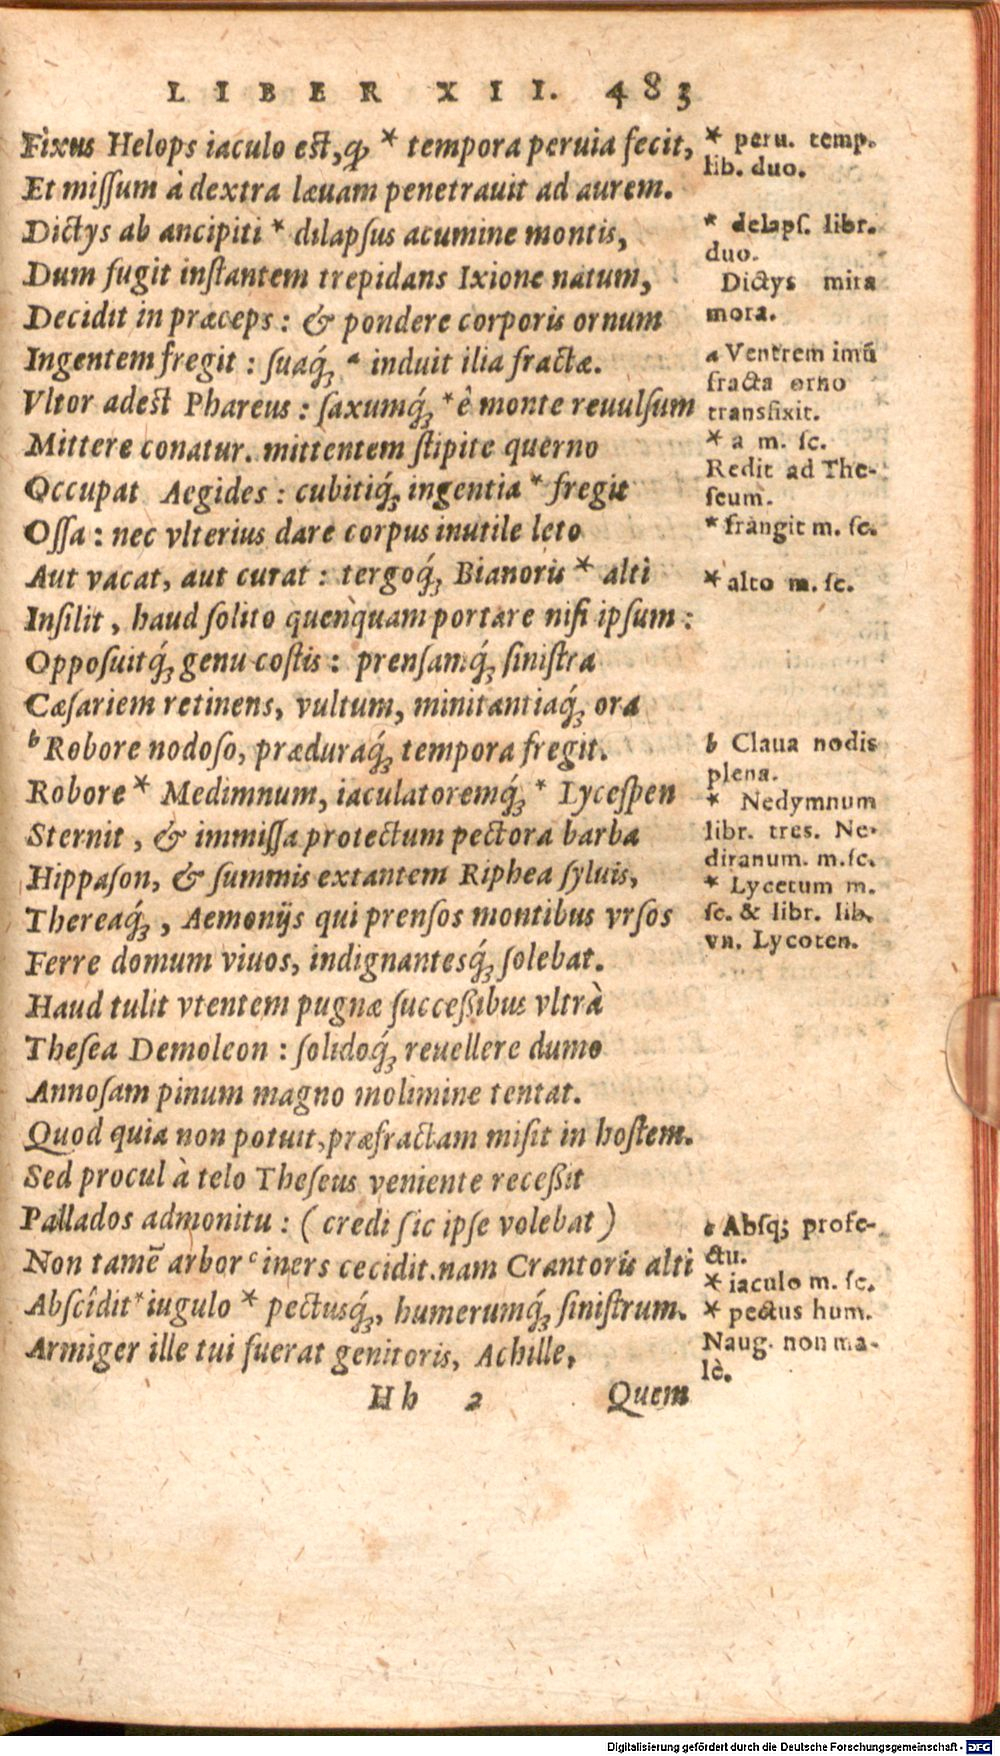 LIBER XII. 483
Fixus Helops iaculo est, ꝙ * tempora peruia fecit,
Et missum à dextra læuam penetrauit ad aurem.
Dictys ab ancipiti * dilapsus acumine montis,
Dum fugit instantem trepidans Ixione natum,
Decidit in præceps: & pondere corporis ornum
Ingentem fregit: suaq́ꝫ ᵃ induit ilia fractæ.
Vltor adest Phareus: saxumq́ꝫ * è monte reuulsum
Mittere conatur. mittentem stipite querno
Occupat Aegides: cubitiq́ꝫ ingentia * fregit
Ossa: nec vlterius dare corpus inutile leto
Aut vacat, aut curat: tergoq́ꝫ Bianoris * alti
Insilit, haud solito quenquam portare nisi ipsum:
Opposuitq́ꝫ genu costis: prensamq́ꝫ sinistra
Cæsariem retinens, vultum, minitantiaq́ꝫ ora
ᵇ Robore nodoso, præduraq́ꝫ tempora fregit.
Robore * Medimnum, iaculatoremq́ꝫ * Lycespen
Sternit, & immissa protectum pectora barba
Hippason, & summis extantem Riphea syluis,
Thereaq́ꝫ, Aemonijs qui prensos montibus vrsos
Ferre domum viuos, indignantesq́ꝫ solebat.
Haud tulit vtentem pugnæ successibus vltrà
Thesea Demoleon: solidoq́ꝫ reuellere dumo
Annosam pinum magno molimine tentat.
Quod quia non potuit, præfractam misit in hostem.
Sed procul à telo Theseus veniente recessit
Pallados admonitu: (credi sic ipse volebat)
Non tamē arbor ᶜ iners cecidit. nam Crantoris alti
Abscîdit * iugulo * pectusq́ꝫ, humerumq́ꝫ sinistrum.
Armiger ille tui fuerat genitoris, Achille,
Hh 2 Quem
* peru. temp.
lib. duo.
* delaps. libr.
duo.
Dictys mira
mora.
a Ventrem imū
fracta orno
transfixit.
* a m. sc.
Redit ad The-
seum.
* frangit m. sc.
* alto m. sc.
b Claua nodis
plena.
* Nedymnum
libr. tres. Ne-
diranum. m. sc.
* Lycetum m.
sc. & libr. lib.
vn. Lycoten.
c Absq; profe-
ctu.
* iaculo m. sc.
* pectus hum.
Naug. non ma-
lè.
Digitalisierung gefördert durch die Deutsche Forschungsgemeinschaft - DFG